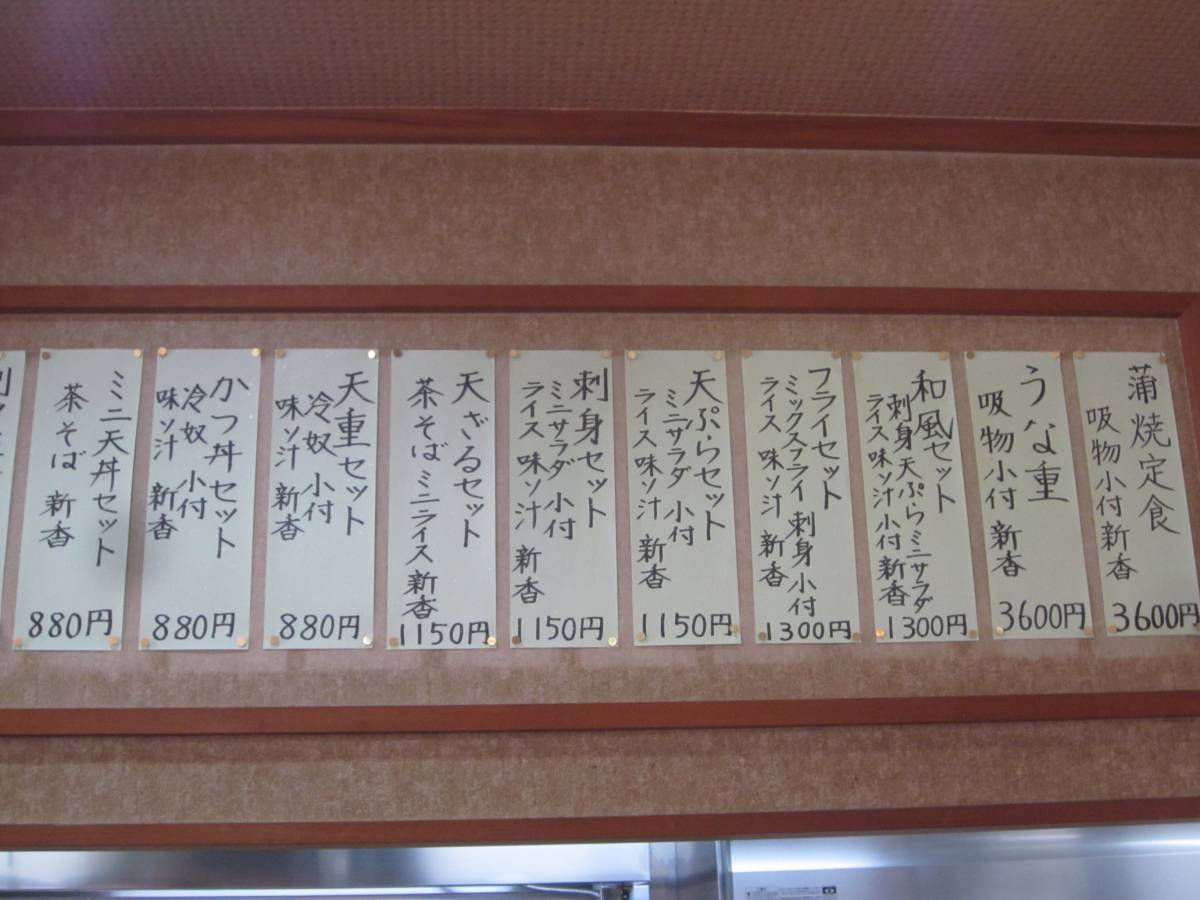 蒲焼定食
吸物小付新香
3600円
うな重
吸物小付 新香
3600円
和風セット
刺身天ぷらミニサラダ
ライス味ソ汁小付新香
1300円
フライセット
ミックスフライ刺身小付
ライス 味ソ汁 新香
1300円
天ぷらセット
ミニサラダ 小付
ライス味ソ汁 新香
1150円
刺身セット
ミニサラダ 小付
ライス味ソ汁 新香
1150円
天ざるセット
茶そばミニライス新香
1150円
天重セット
冷奴 小付
味ソ汁 新香
880円
かつ丼セット
冷奴 小付
味ソ汁 新香
880円
ミニ天丼セット
茶そば 新香
880円